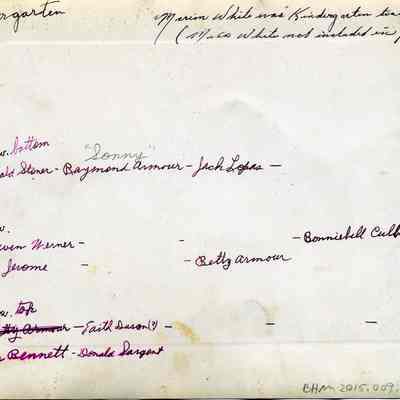 rgarten
Merion White was Kindergarten
(Miss White not included in
w. bottom
"Sonny"
ald Stoner - Raymond Armour - Jack Lopas -
w.
even Werner - - - Bonniebell Culb
Jerome - - Betty Armour
w. top
tty Armour - Faith Duson(?) - - -
Bennett - Donald Sargent
BHM 2015.009.